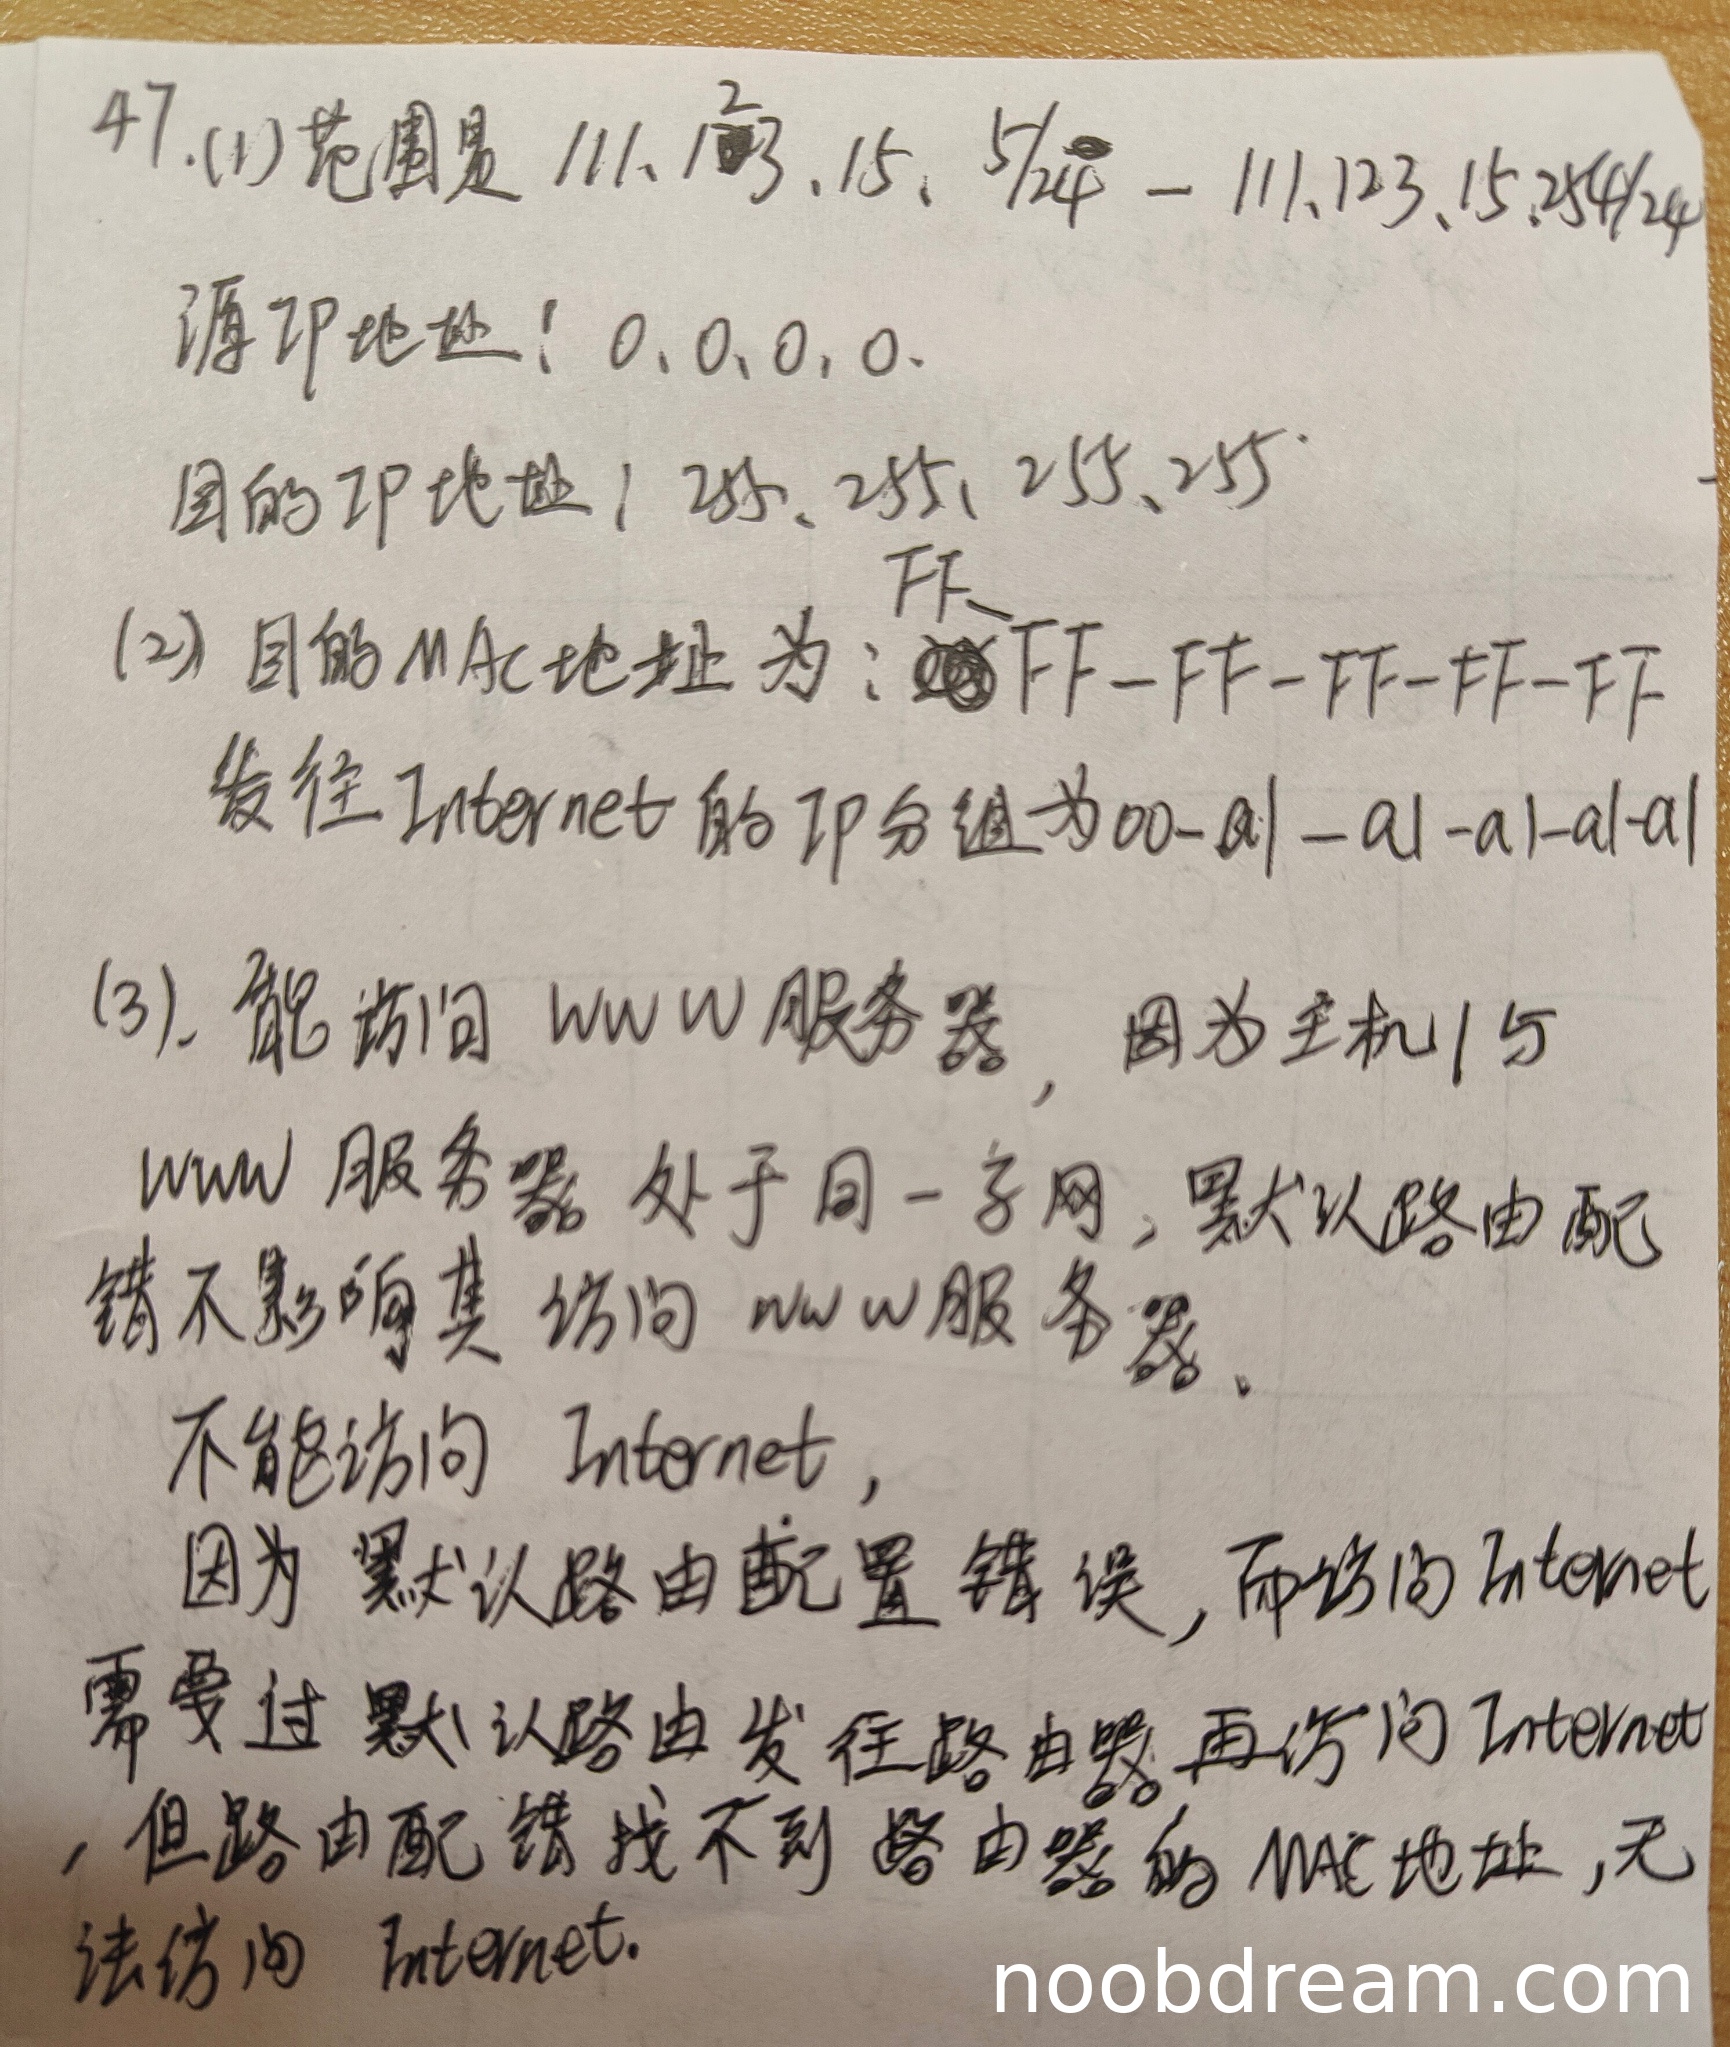 47.(1)范围是 111.123.15.5/24 — 111.123.15.254/24
源IP地址: 0.0.0.0.
目的IP地址: 255.255.255.255.
(2) 目的MAC地址为: FF-FF-FF-FF-FF-FF
发往Internet的IP分组为00-a1-a1-a1-a1-a1
(3). 能访问 WWW服务器, 因为主机1与
WWW 服务器处于同一子网, 默认路由配
错不影响其访问 www服务器.
不能访问 Internet,
因为默认路由配置错误, 而访问Internet
需要过默认路由发往路由器再访问Internet
, 但路由配错找不到路由器的MAC地址, 无
法访问 Internet.
noobdream.com